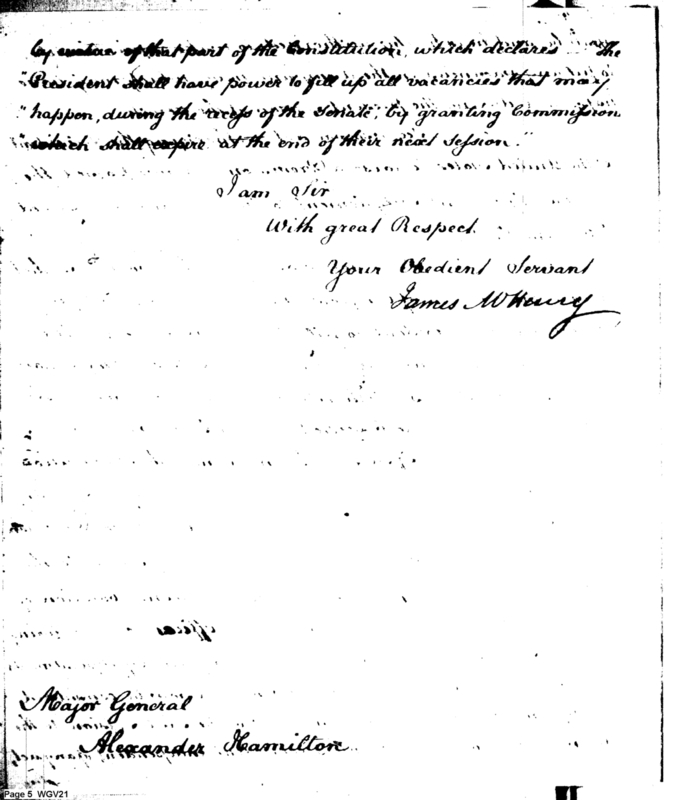 by virtue of that part of the Constitution, which declares "The
"President shall have power to fill up all vacancies that may
"happen, during the recess of the Senate, by granting Commission
"which shall expire at the end of their next session."
I am Sir
With great Respect
Your Obedient Servant
James McHenry
Major General
Alexander Hamilton
Page 5 WGV21